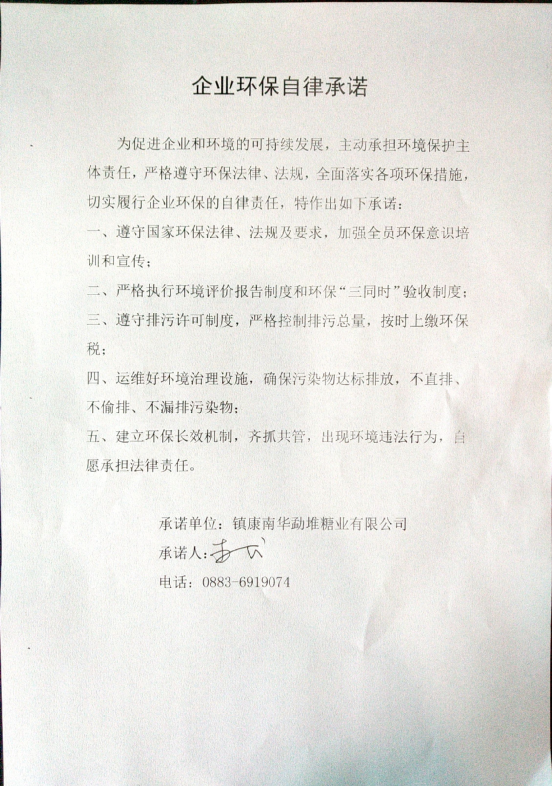 企业环保自律承诺
为促进企业和环境的可持续发展，主动承担环境保护主
体责任，严格遵守环保法律、法规，全面落实各项环保措施，
切实履行企业环保的自律责任，特作出如下承诺：
一、遵守国家环保法律、法规及要求，加强全员环保意识培
训和宣传；
二、严格执行环境评价报告制度和环保“三同时”验收制度；
三、遵守排污许可制度，严格控制排污总量，按时上缴环保
税；
四、运维好环境治理设施，确保污染物达标排放，不直排、
不偷排、不漏排污染物；
五、建立环保长效机制，齐抓共管，出现环境违法行为，自
愿承担法律责任。
承诺单位：镇康南华勐堆糖业有限公司
承诺人：
电话：0883-6919074